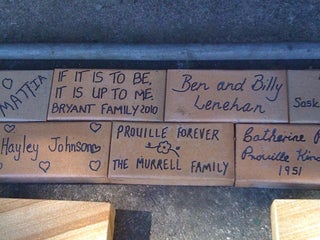 MATTIA
IF IT IS TO BE,
IT IS UP TO ME,
BRYANT FAMILY 2010
Ben and Billy
Lenehan
Sask
Hayley Johnson
PROUILLE FOREVER
THE MURRELL FAMILY
Catherine
Prouille Kind
1951